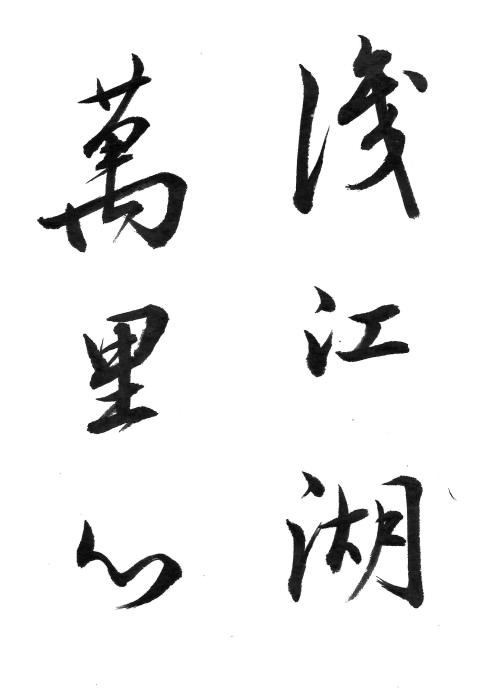 淺江湖
萬里心